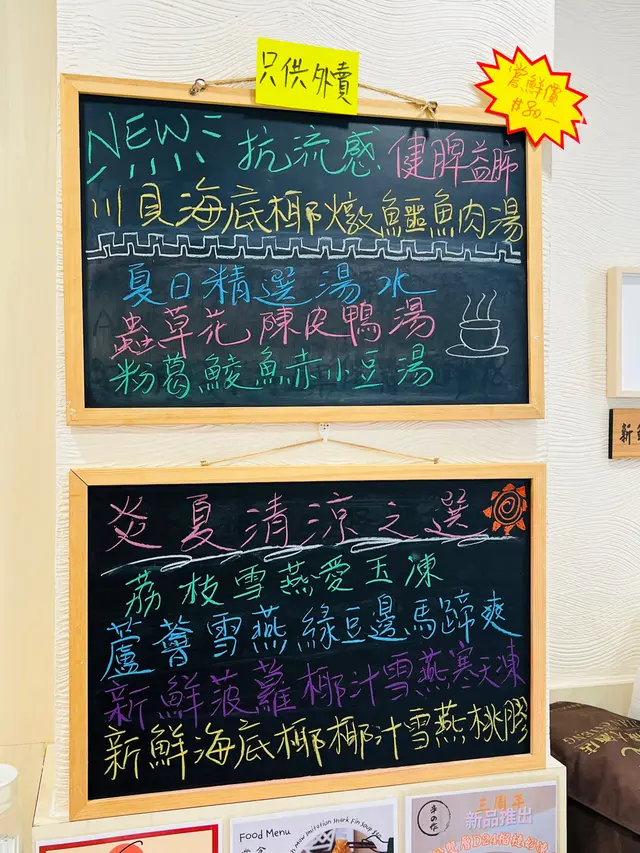 只供外賣
嘗鮮價
$80.—
NEW 抗流感 健脾益肺
川貝海底椰燉鱷魚肉湯
夏日精選湯水
蟲草花陳皮鴨湯
粉葛鯪魚赤小豆湯
炎夏清涼之選
荔枝雪燕愛玉凍
蘆薈雪燕綠豆邊馬蹄爽
新鮮菠蘿椰汁雪燕寒天凍
新鮮海底椰椰汁雪燕桃膠
Food Menu
Imitation Shark Fin Soup
手の作
三周年
新品推出